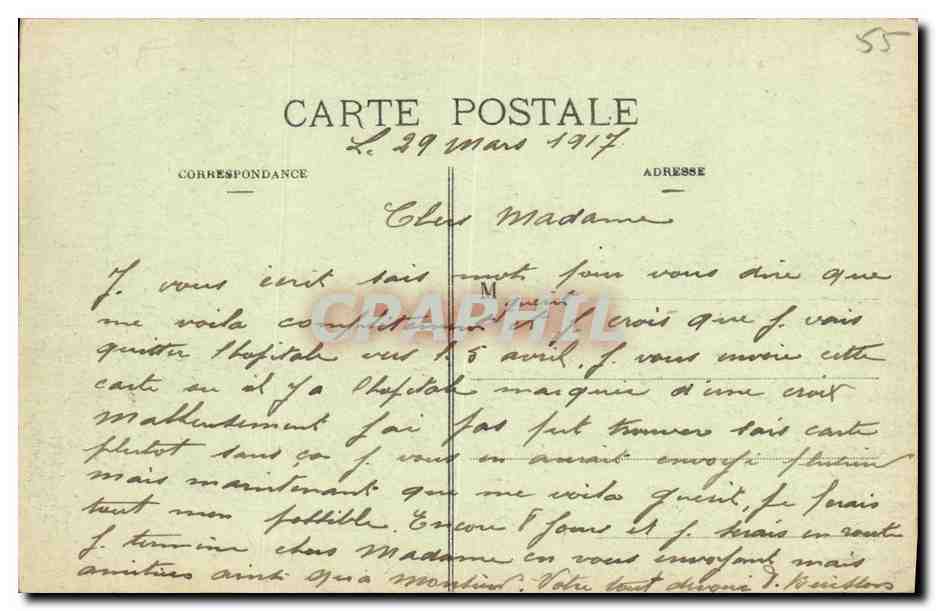 55
CARTE POSTALE
L. 29 Mars 1917
CORRESPONDANCE
ADRESSE
Chers Madame
J. vous écrit sais mots pour vous dire que
M
guerit
me voila complitement et J. crois que J. vais
quitter l'hopitale vers l. 5 avril. J. vous envoie cette
carte ou il y a l'hopitale marquer d'une croix
Malheusement J'ai pas put trouver sais carte
plutot sans ça J. vous en aurait envoyé plusieur
mais maintenant que me voila guerit, Je ferais
tout mon possible. Encore 8 jours et J. serais en route
J. termine chers Madame en vous envoyant mais
amitiers ainsi qu'a Monsieur. Votre tout devoué
CPAPHIL